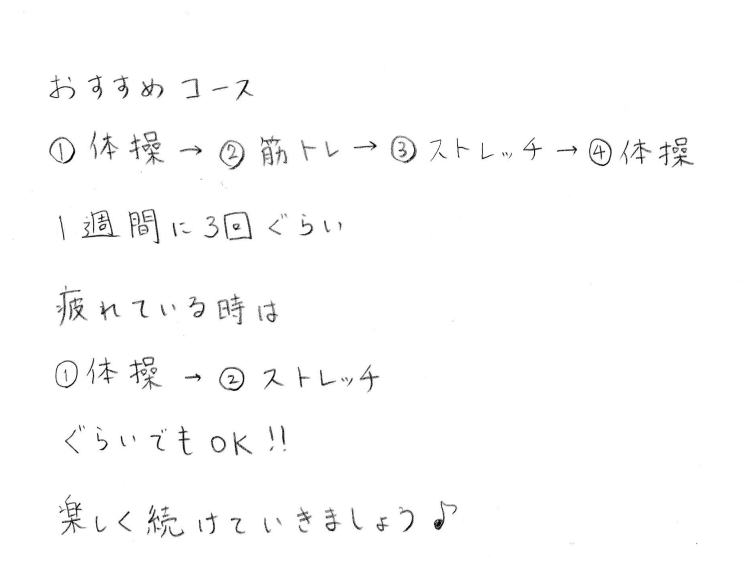 おすすめコース
①体操→②筋トレ→③ストレッチ→④体操
1週間に3回ぐらい
疲れている時は
①体操→②ストレッチ
ぐらいでもOK!!
楽しく続けていきましょう♪